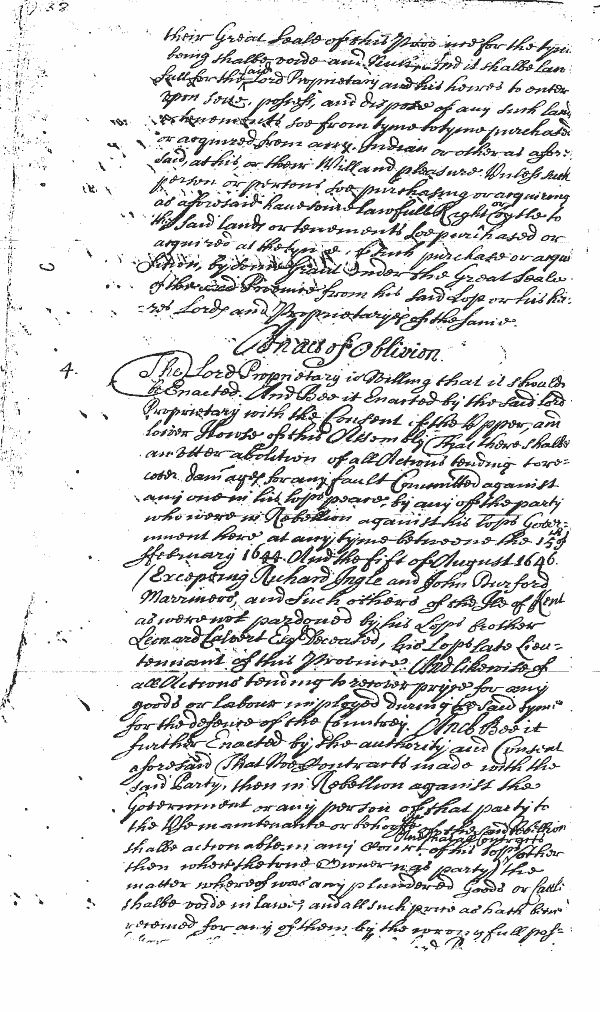 38
their Great Seale of this Province for the tyme
being shalbe voide and Null, And it shalbe law
full for the said Lord Proprietary and his heires to enter
upon seize, possess, and dispose of any such land
or tenements soe from tyme to tyme purchased
or acquired from any Indian or other as afore-
said, at his or their Will and pleasure Unless such
person or persons soe purchasing or acquiring
as aforesaid have some lawfull Right or title to
the said lands or tenements soe purchased or
acquired at the tyme of such purchase or acqui
sition, by some Grant under the Great Seale
of the said Province from his said Lopp or his hei-
=res Lords and Proprietarys of the same.
An act of Oblivion
4. The Lord Proprietary is Willing that it should
be Enacted. And Bee it Enacted by the said Lord
Proprietary with the Consent of the Upper and
lower House of this Assembly That there shalbe
an utter abolition of all Actions tending to re=
cover damages for any fault Committed against
any one in his Lopps peace, by any of the party
who were in Rebellion against his Lopps Gover-
nment here at any tyme betweene the 15th of
ffebruary 1644. And the fift of August 1646
/Excepting Richard Ingle and John Durford
Marriners, and such others of the Ile of Kent
as were not pardoned by his Lopps brother
Leonard Calvert Esqr deceased, his Lopps late Lieu-
tennant of this Province And likewise of
all Actions tending to recover price for any
goods or labour imployed during the said tyme
for the defence of the Countrey. And Bee it
further Enacted by the authority and Consent
aforesaid That Noe Contracts made with the
said Party, then in Rebellion against the
Government or any person of that party to
the Use maintenance or behoofe of the said Rebellion
shalbe actionable in any Court of his Lopps
And that all Contracts other
then where the true Owner is party the
matter whereof was any plundered Goods or Cattle
shalbe voide in lawe, and all such price as hath been
received for any of them by the wrongfull poss-